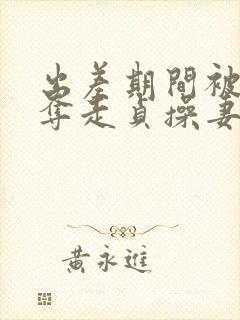 出差期間被
奪走貞操妻
黃永進